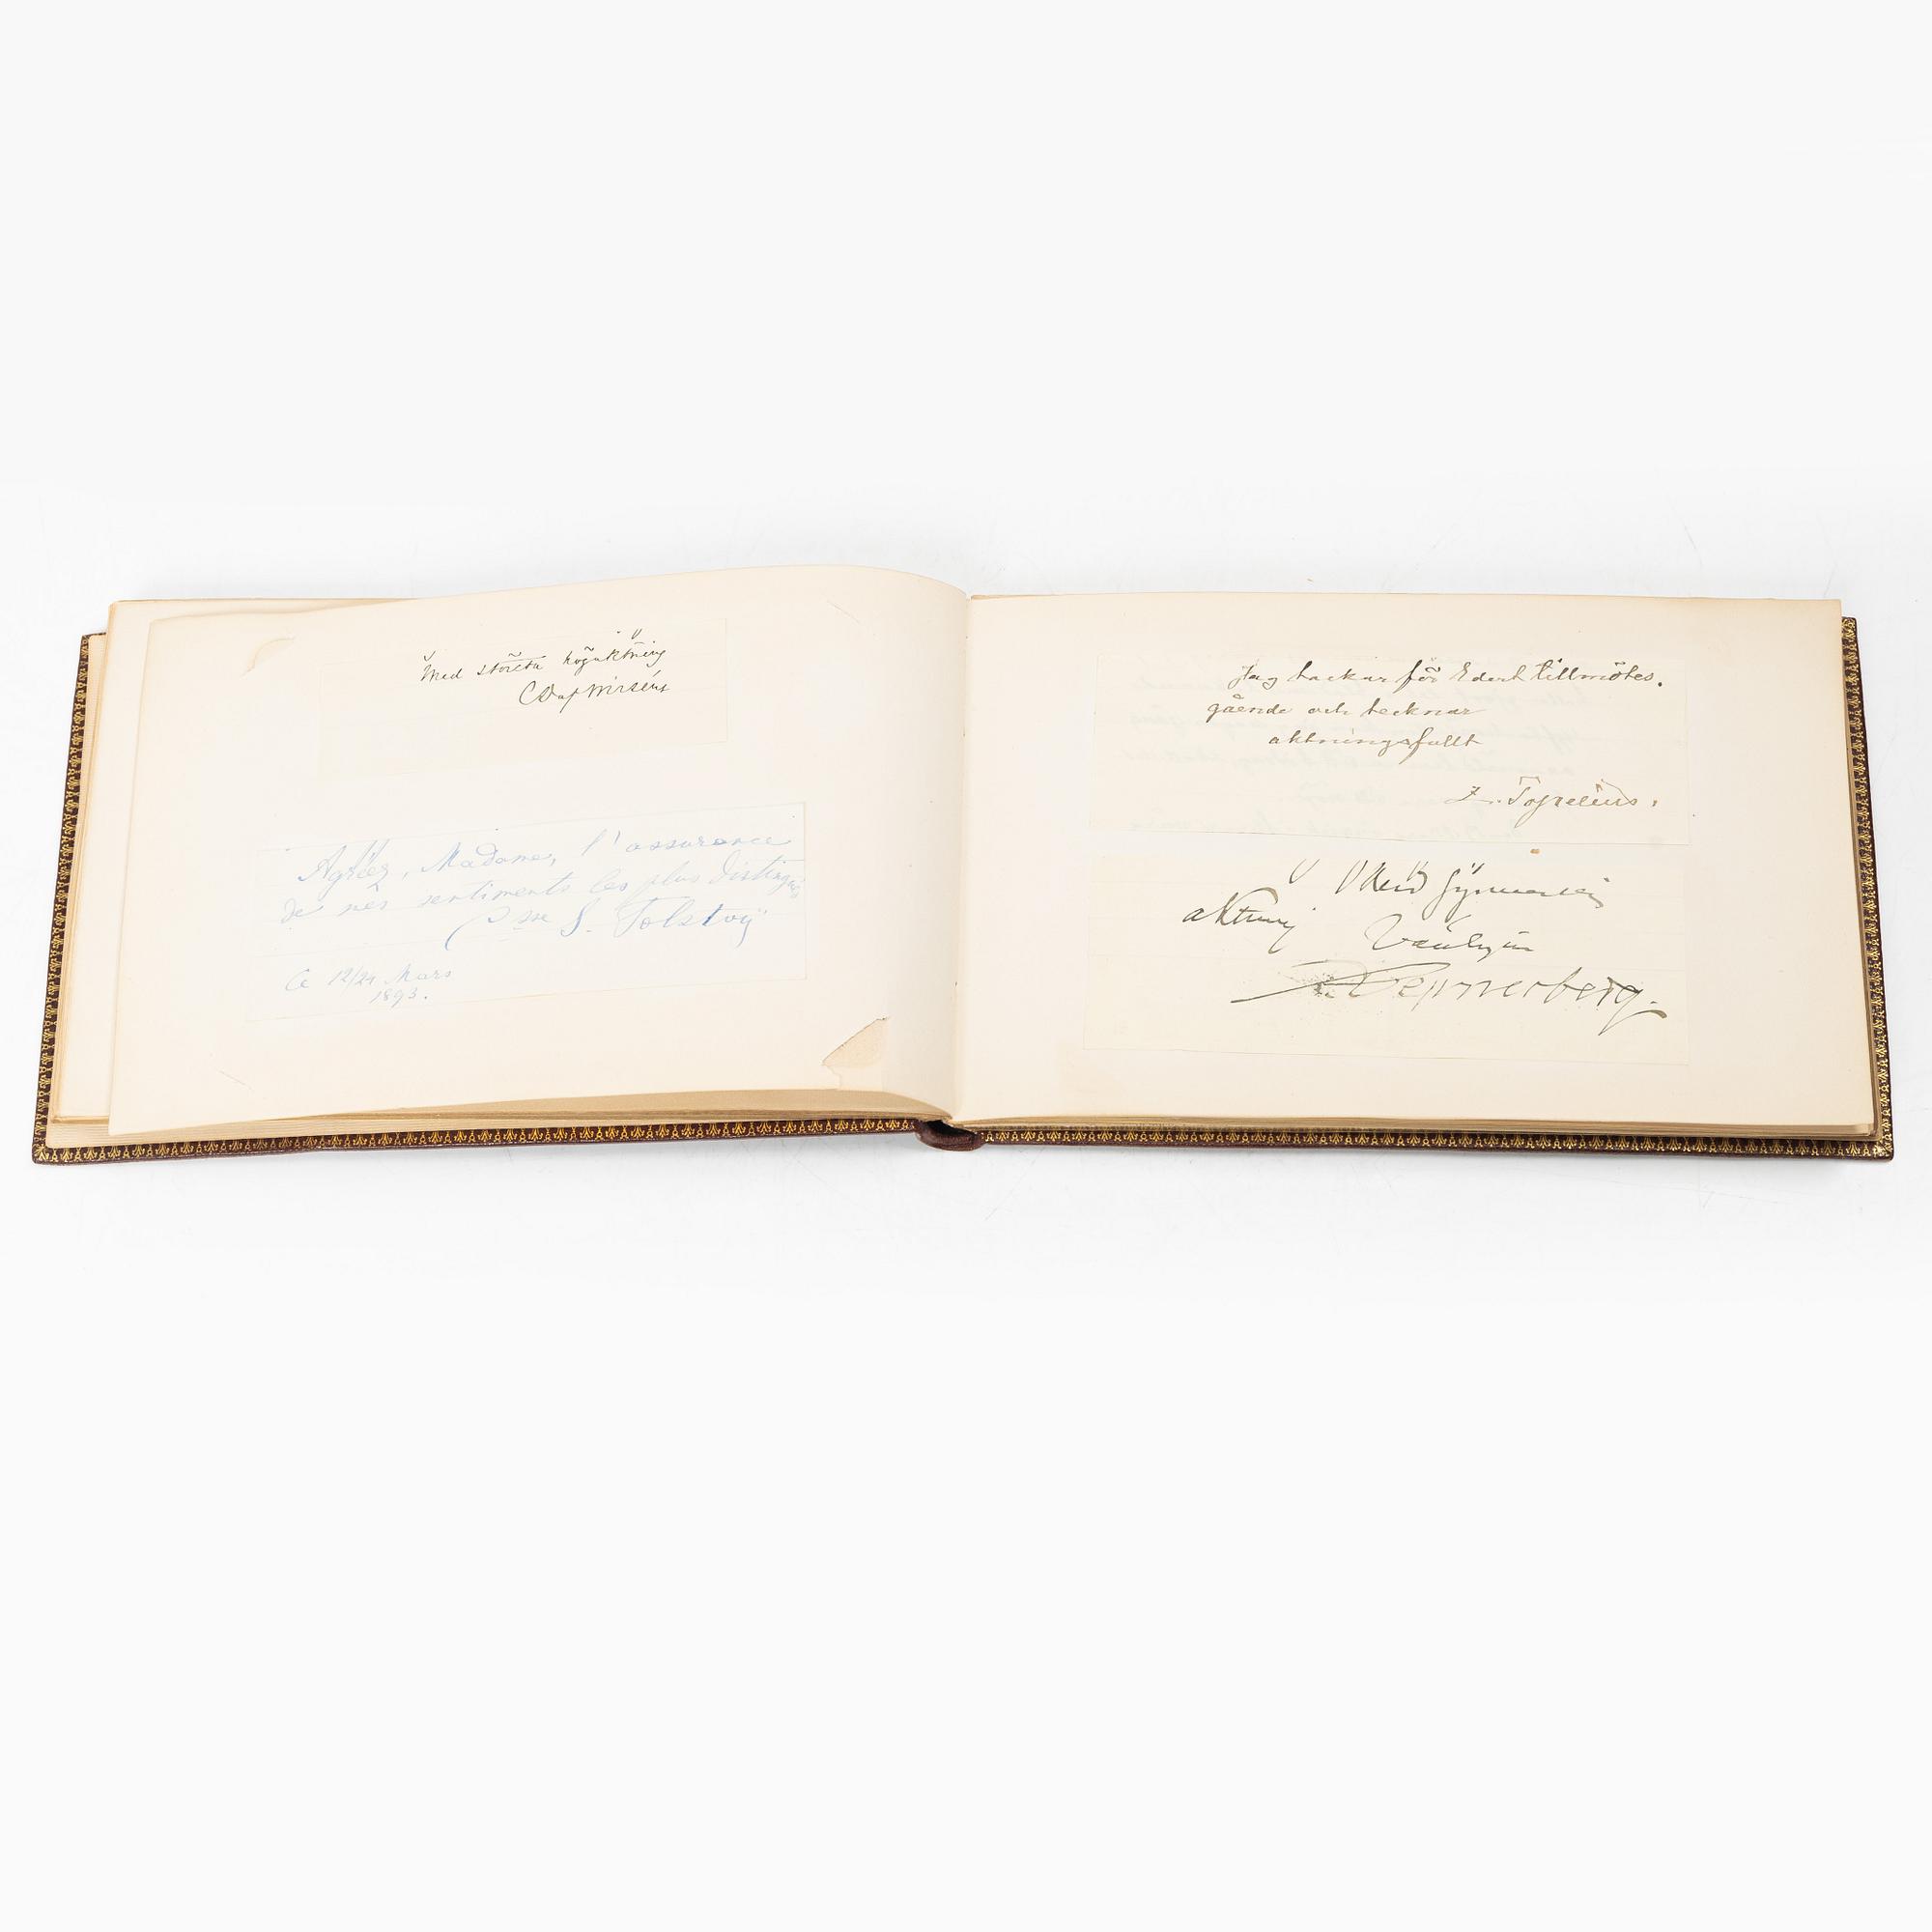 Med största högaktning
CDaf Wirsén
Agréez, Madame, l'assurance
de mes sentiments les plus distingués
S. Tolstoy
Ce 12/24 Mars
1893.
Jag tackar för Edert tillmötes-
gående och tecknar
aktningsfullt
Z. Topelius.
Med
aktning
Wennerberg.